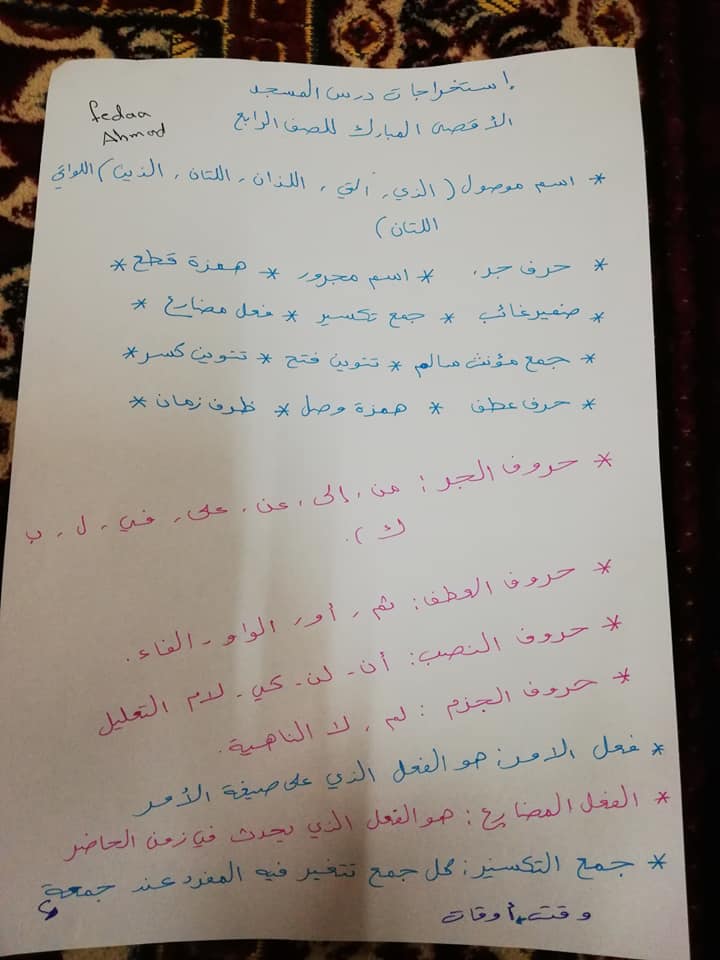 إستخراجات درس المسجد
الأقصى المبارك للصف الرابع
fedaa
Ahmad
* اسم موصول ( الذي، التي، اللذان، اللتان، الذين) اللواتي
اللتان)
* حرف جر. * اسم مجرور * همزة قطع *
* ضمير غائب * جمع تكسير * فعل مضارع *
* جمع مؤنث سالم * تنوين فتح * تنوين كسر *
* حرف عطف * همزة وصل * ظرف زمان *
* حروف الجر : من، إلى، عن، على، في، ل، ب
ك ).
* حروف العطف: ثم، أو، الواو، الفاء.
* حروف النصب: أن - لن - كي - لام التعليل
* حروف الجزم : لم، لا الناهية.
* فعل الامر: هو الفعل الذي على صيغة الأمر
* الفعل المضارع : هو الفعل الذي يحدث في زمن الحاضر
* جمع التكسير: كل جمع تتغير فيه المفرد عند جمعة
وقت، أوقات